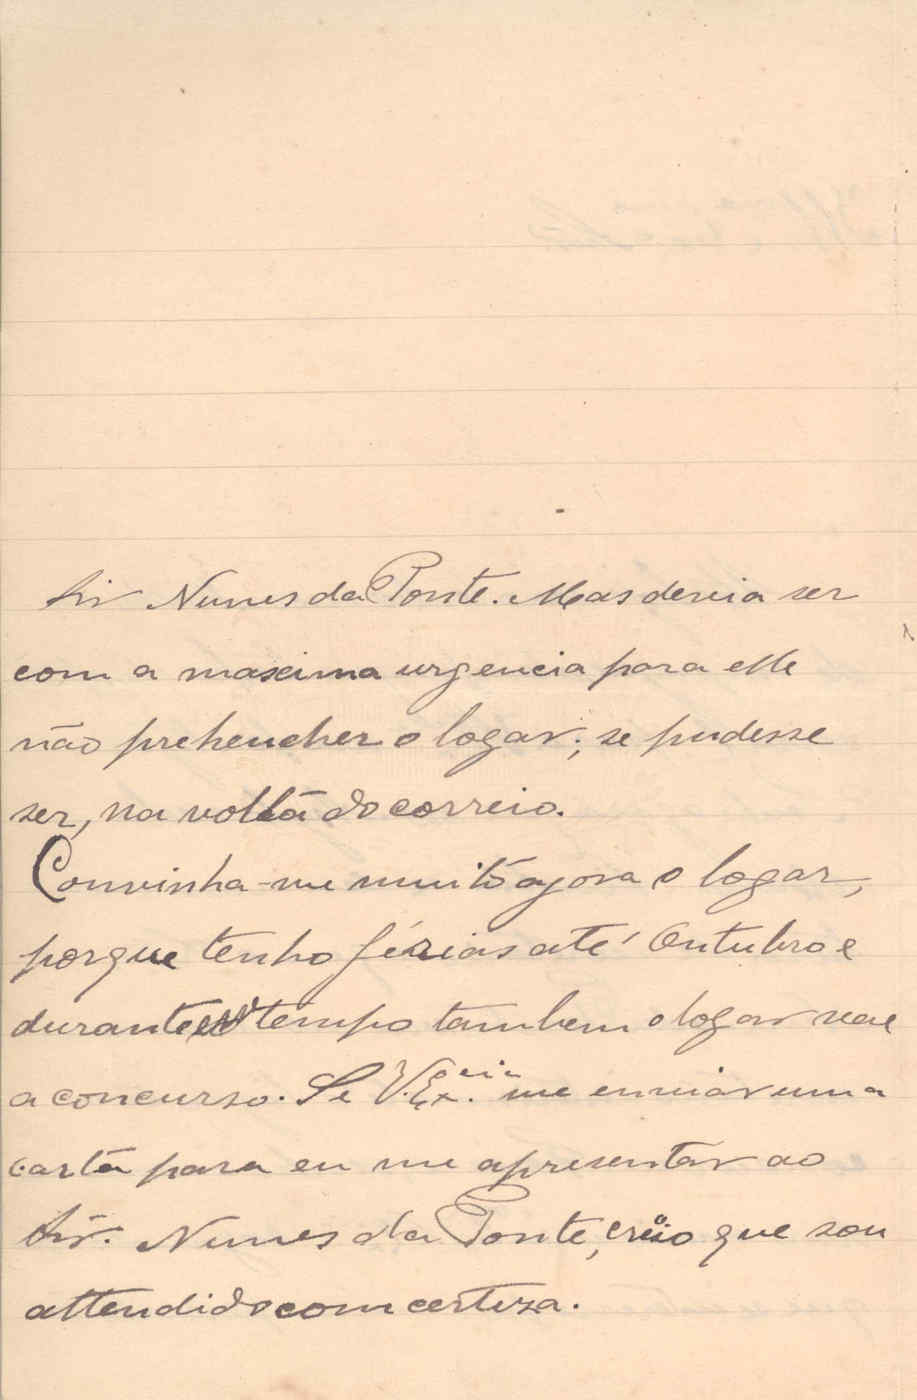 Snr Nunes da Ponte. Mas devia ser
com a maxima urgencia para elle
não prehencher o logar; se pudesse
ser, na volta do correio.
Convinha-me muito agora o logar,
porque tenho férias até Outubro e
durante tempo tambem o logar vae
a concurso. Se V. Exª. me enviar uma
carta para eu me apresentar ao
Snr. Nunes da Ponte, creio que sou
attendido com certeza.